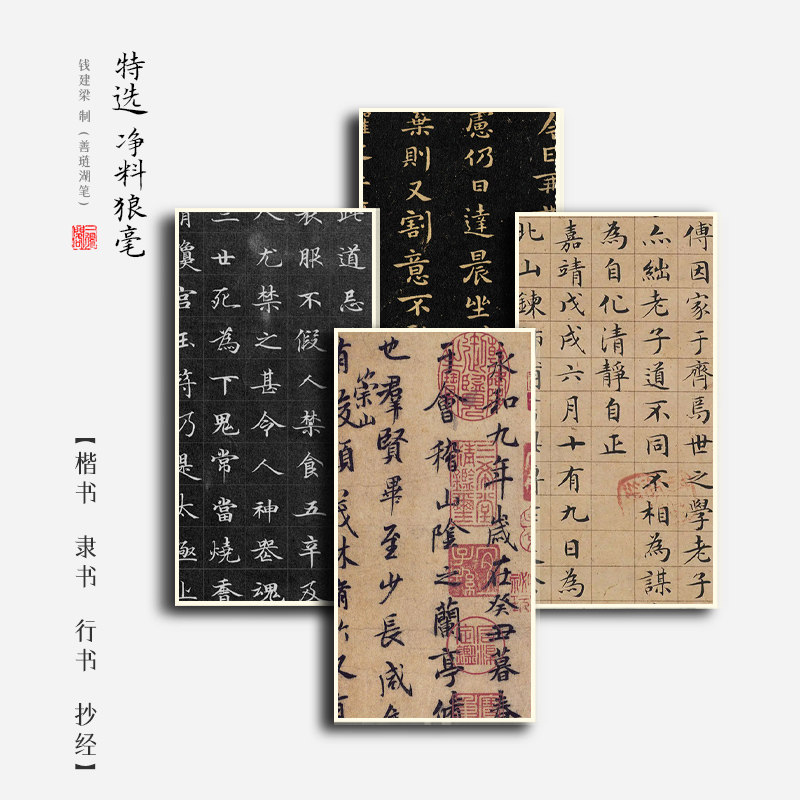 特选 净料狼毫
钱建梁 制（善琏湖笔）
【楷书 隶书 行书 抄经】
慮仍日達晨坐
棄則又割意不
此道忌
衣服不假人禁食五辛及
人尤禁之甚令人神器魂
三世死為下鬼常當燒香
宫玉符乃是太極上
傳因家于齊焉世之學老子
亦絀老子道不同不相為謀
為自化清靜自正
嘉靖戊戌六月十有九日為
北山鍊師
永和九年歲在癸丑暮春
于會稽山陰之蘭亭脩
也羣賢畢至少長咸
崇山
有峻領茂林脩竹又有